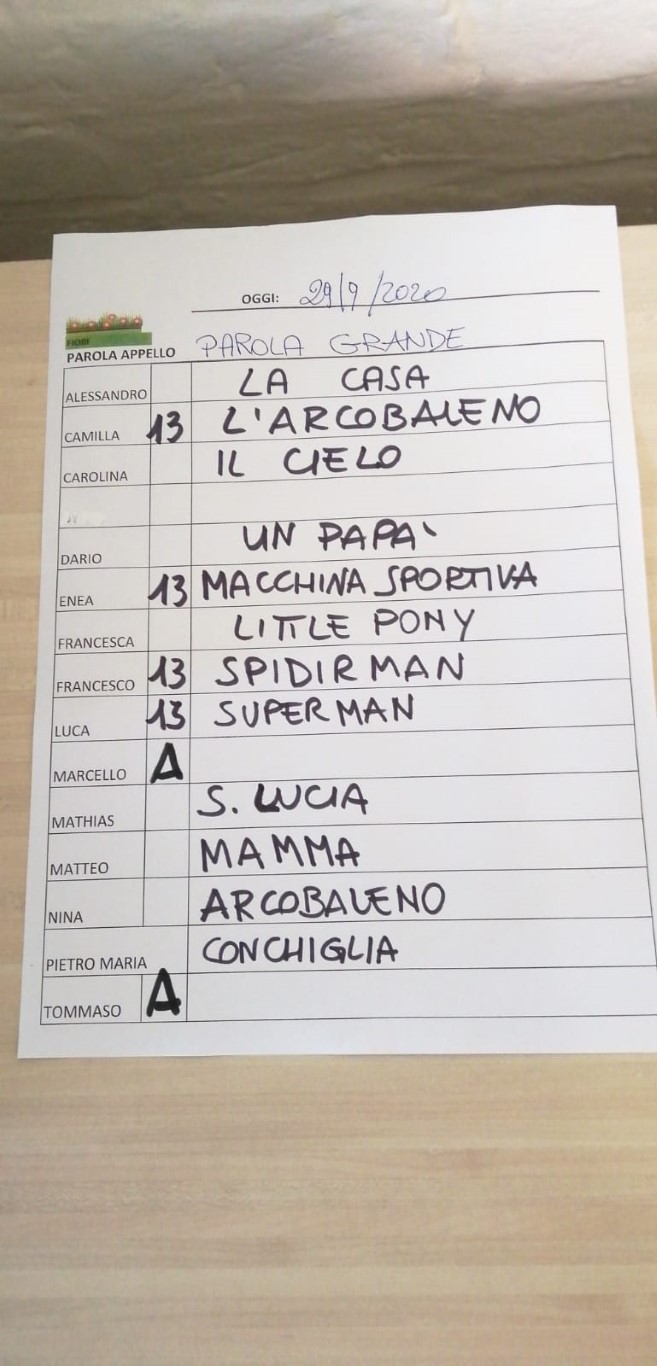 OGGI: 29/9/2020
FIORI
PAROLA APPELLO PAROLA GRANDE
ALESSANDRO LA CASA
CAMILLA 13 L'ARCOBALENO
CAROLINA IL CIELO
DARIO UN PAPA'
ENEA 13 MACCHINA SPORTIVA
FRANCESCA LITTLE PONY
FRANCESCO 13 SPIDIRMAN
LUCA 13 SUPERMAN
MARCELLO A
MATHIAS S. LUCIA
MATTEO MAMMA
NINA ARCOBALENO
PIETRO MARIA CONCHIGLIA
TOMMASO A